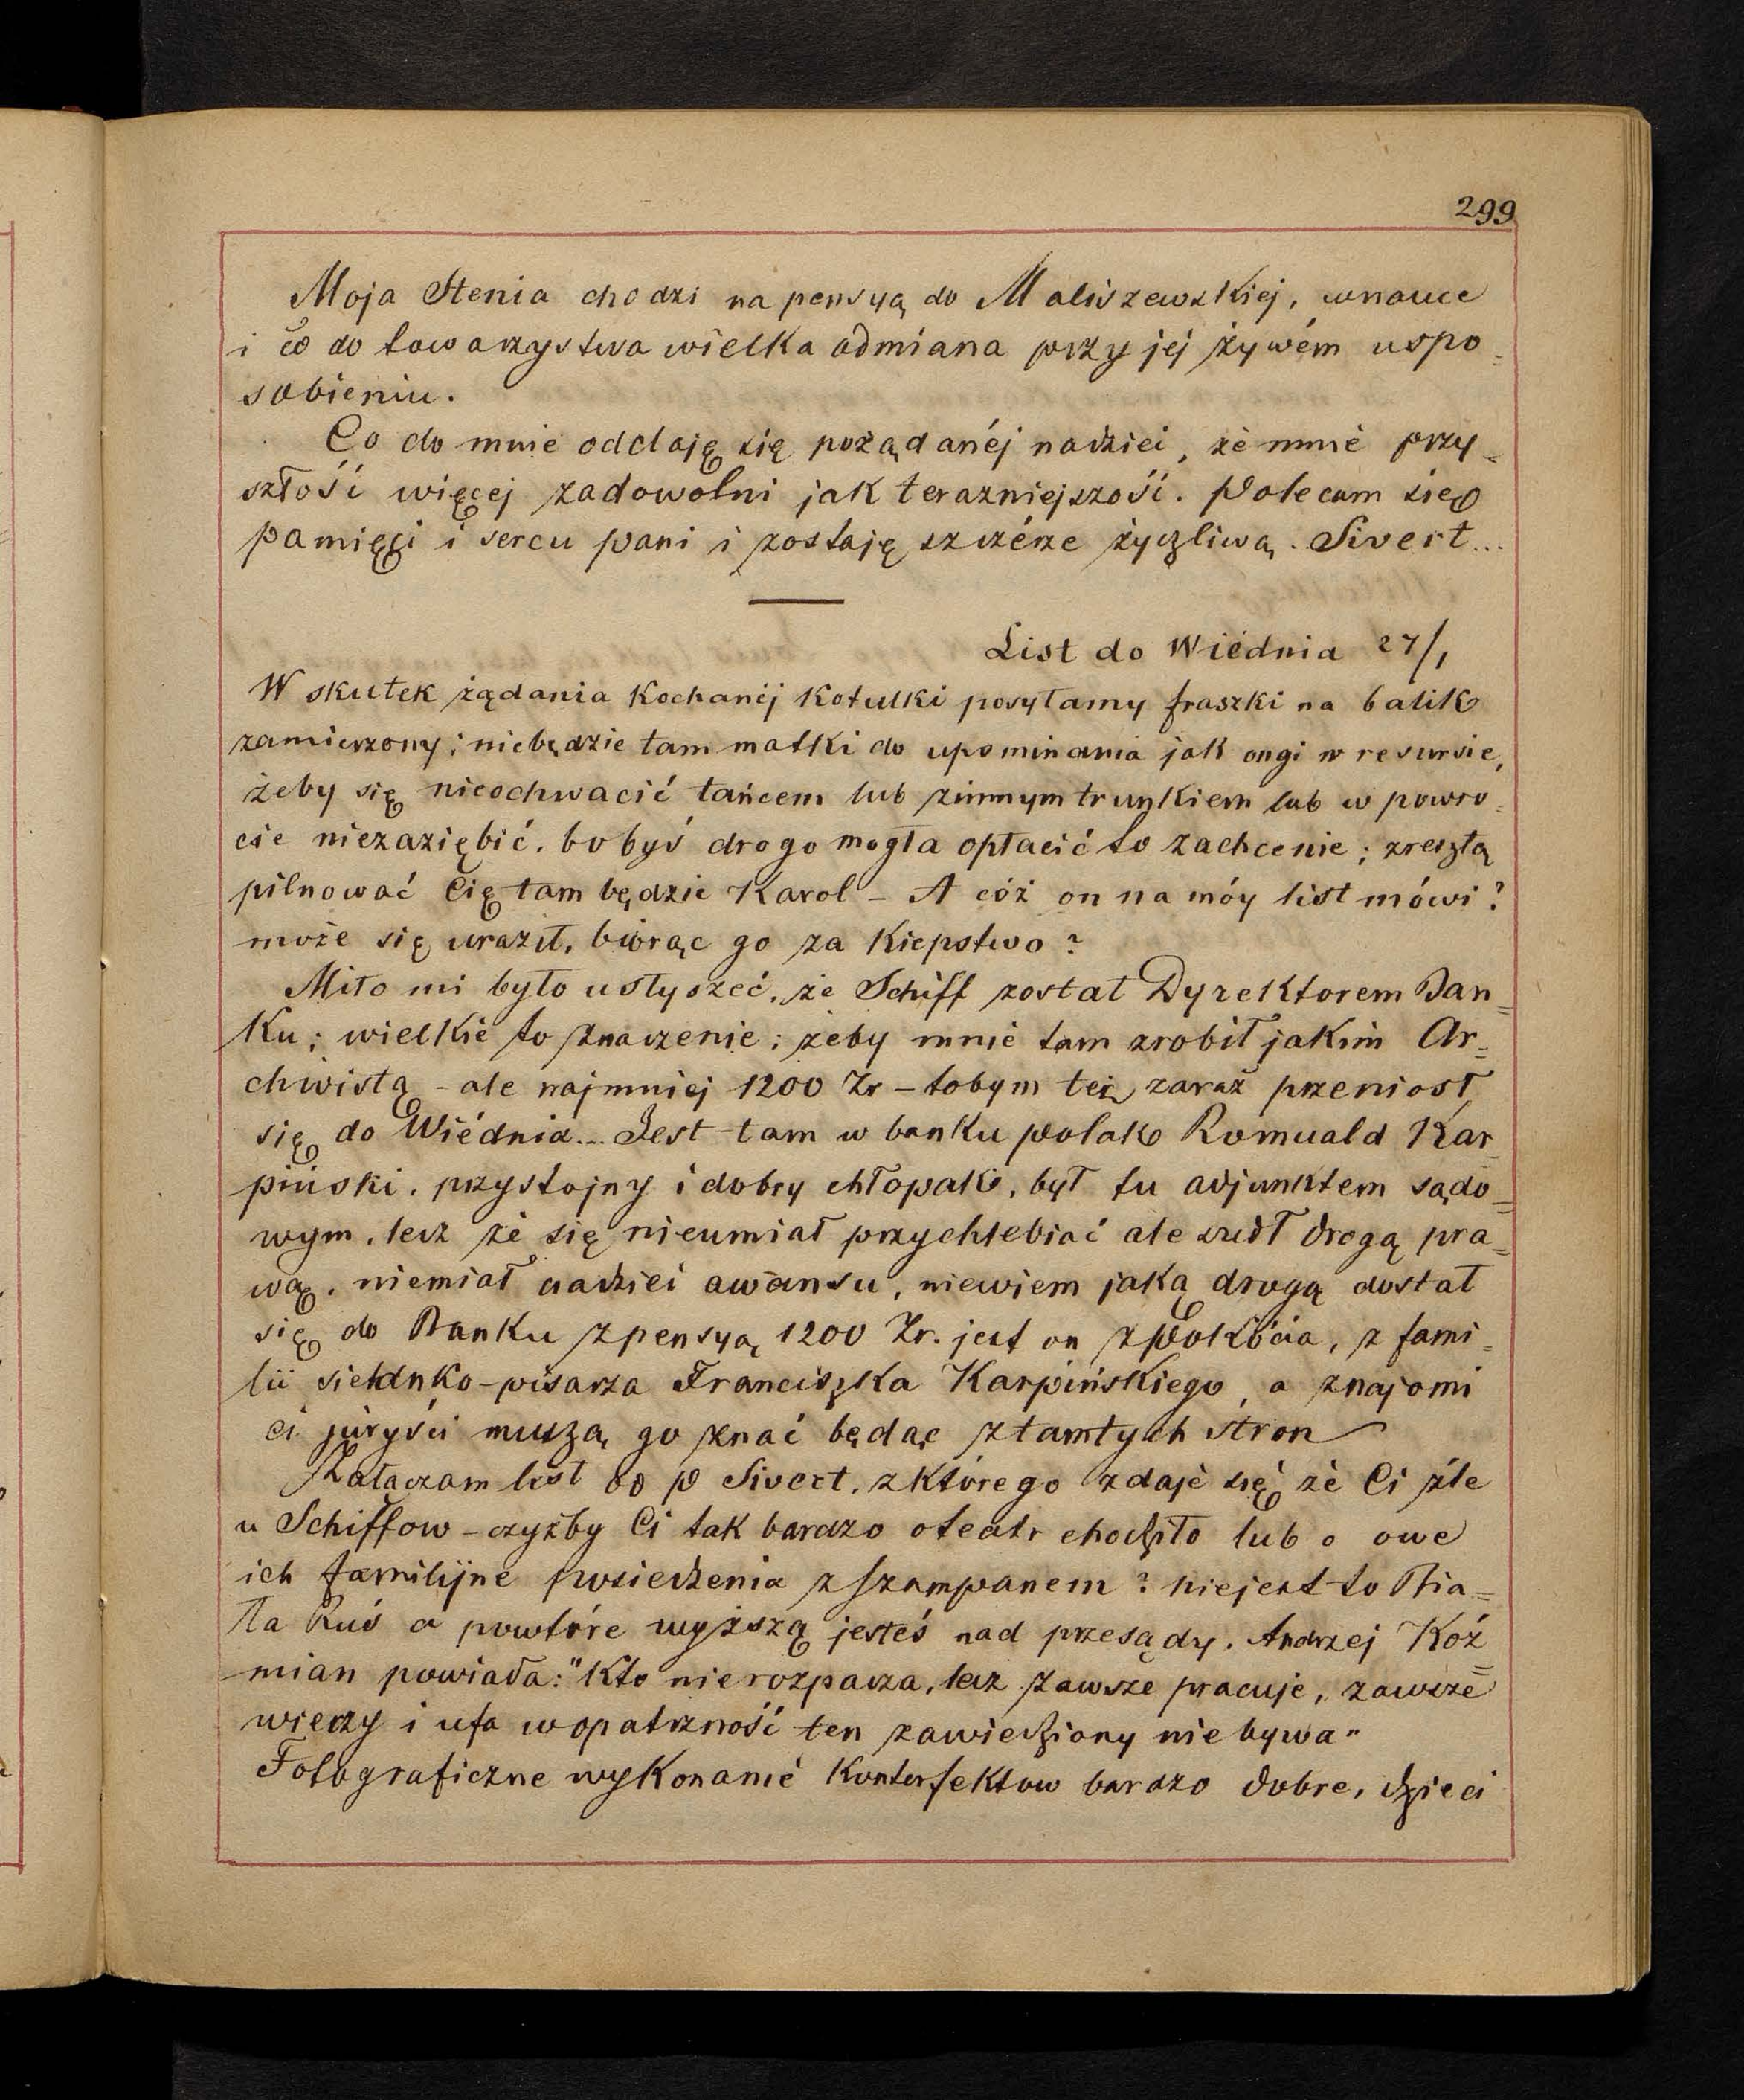 299
Moja Stenia chodzi na pensyą do Maliszewskiej, wnauce
i co do towarzystwa wielka odmiana przy jej żywém uspo=
sobieniu.
Co do mnie oddaję się pożądanéj nadziei, że mnie przy=
szłość więcej zadowolni jak terazniejszość. Polecam się
pamięci i sercu pani i zostaję szczérze życzliwą. Sivert...
List do Wiédnia 27/1
W skutek żądania Kochanéj Kotulki posyłamy fraszki na balik
zamierzony; niebędzie tam matki do upominania jak ongi w resursie,
żeby się nieochwacić tańcem lub zimnym trunkiem lub w powro=
cie niezaziębić, bo byś drogo mogła opłacić to zachcenie; zresztą
pilnować Cię tam będzie Karol – A cóż on na móy list mówi?
może się uraził, biorąc go za Kiepstwo?
Miło mi było usłyszeć, że Schiff został Dyrektorem Ban=
Ku; wielkie to znaczenie; żeby mnie tam zrobił jakim Ar=
chwistą – ale najmniej 1200 Zr – tobym też zaraz przeniosł
się do Wiédnia... Jest tam w banku polak Romuald Kar=
piński, przystojny i dobry chłopak, był tu adjunktem sądo=
wym, lecz że się nieumiał przychlebiać ale szedł drogą pra=
wą, niemiał nadziei awansu, niewiem jaką drogą dostał
się do Banku zpensyą 1200 Zr. jest on z Pokócia, z fami=
lii sielanko-pisarza Franciszka Karpińskiego, a znajomi
ci juryści muszą go znać będąc ztamtych stron
Załączam list od p Sivert, zktórego zdaje się że Ci źle
u Schiffow – czyżby Ci tak bardzo oteatr chodziło lub o owe
ich familijne posiedzenia z szampanem? niejest to Bia=
ła Ruś a powtóre wyższą jesteś nad przesądy. Andrzej Koź=
mian powiada: "Kto nierozpacza, lecz zawsze pracuje, zawsze
wierzy i ufa wopatrzność ten zawiedziony nie bywa"
Fotograficzne wykonanie Konterfektow bardzo dobre, dzieci